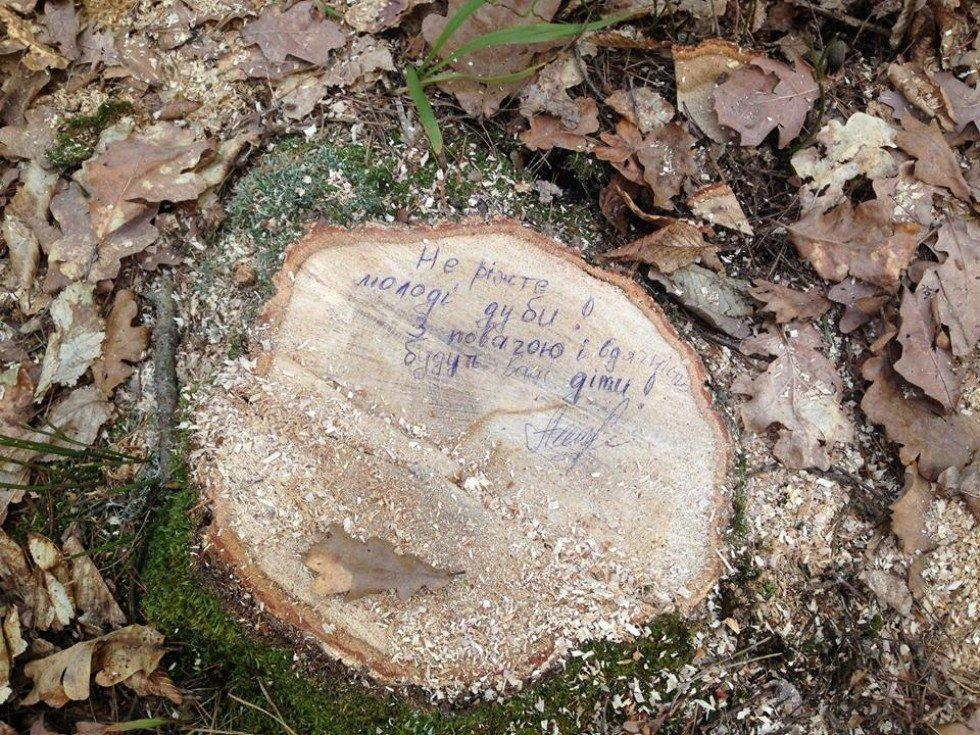 Не ріжте
молоді дуби!
З повагою і вдячністю
будуть вам діти!